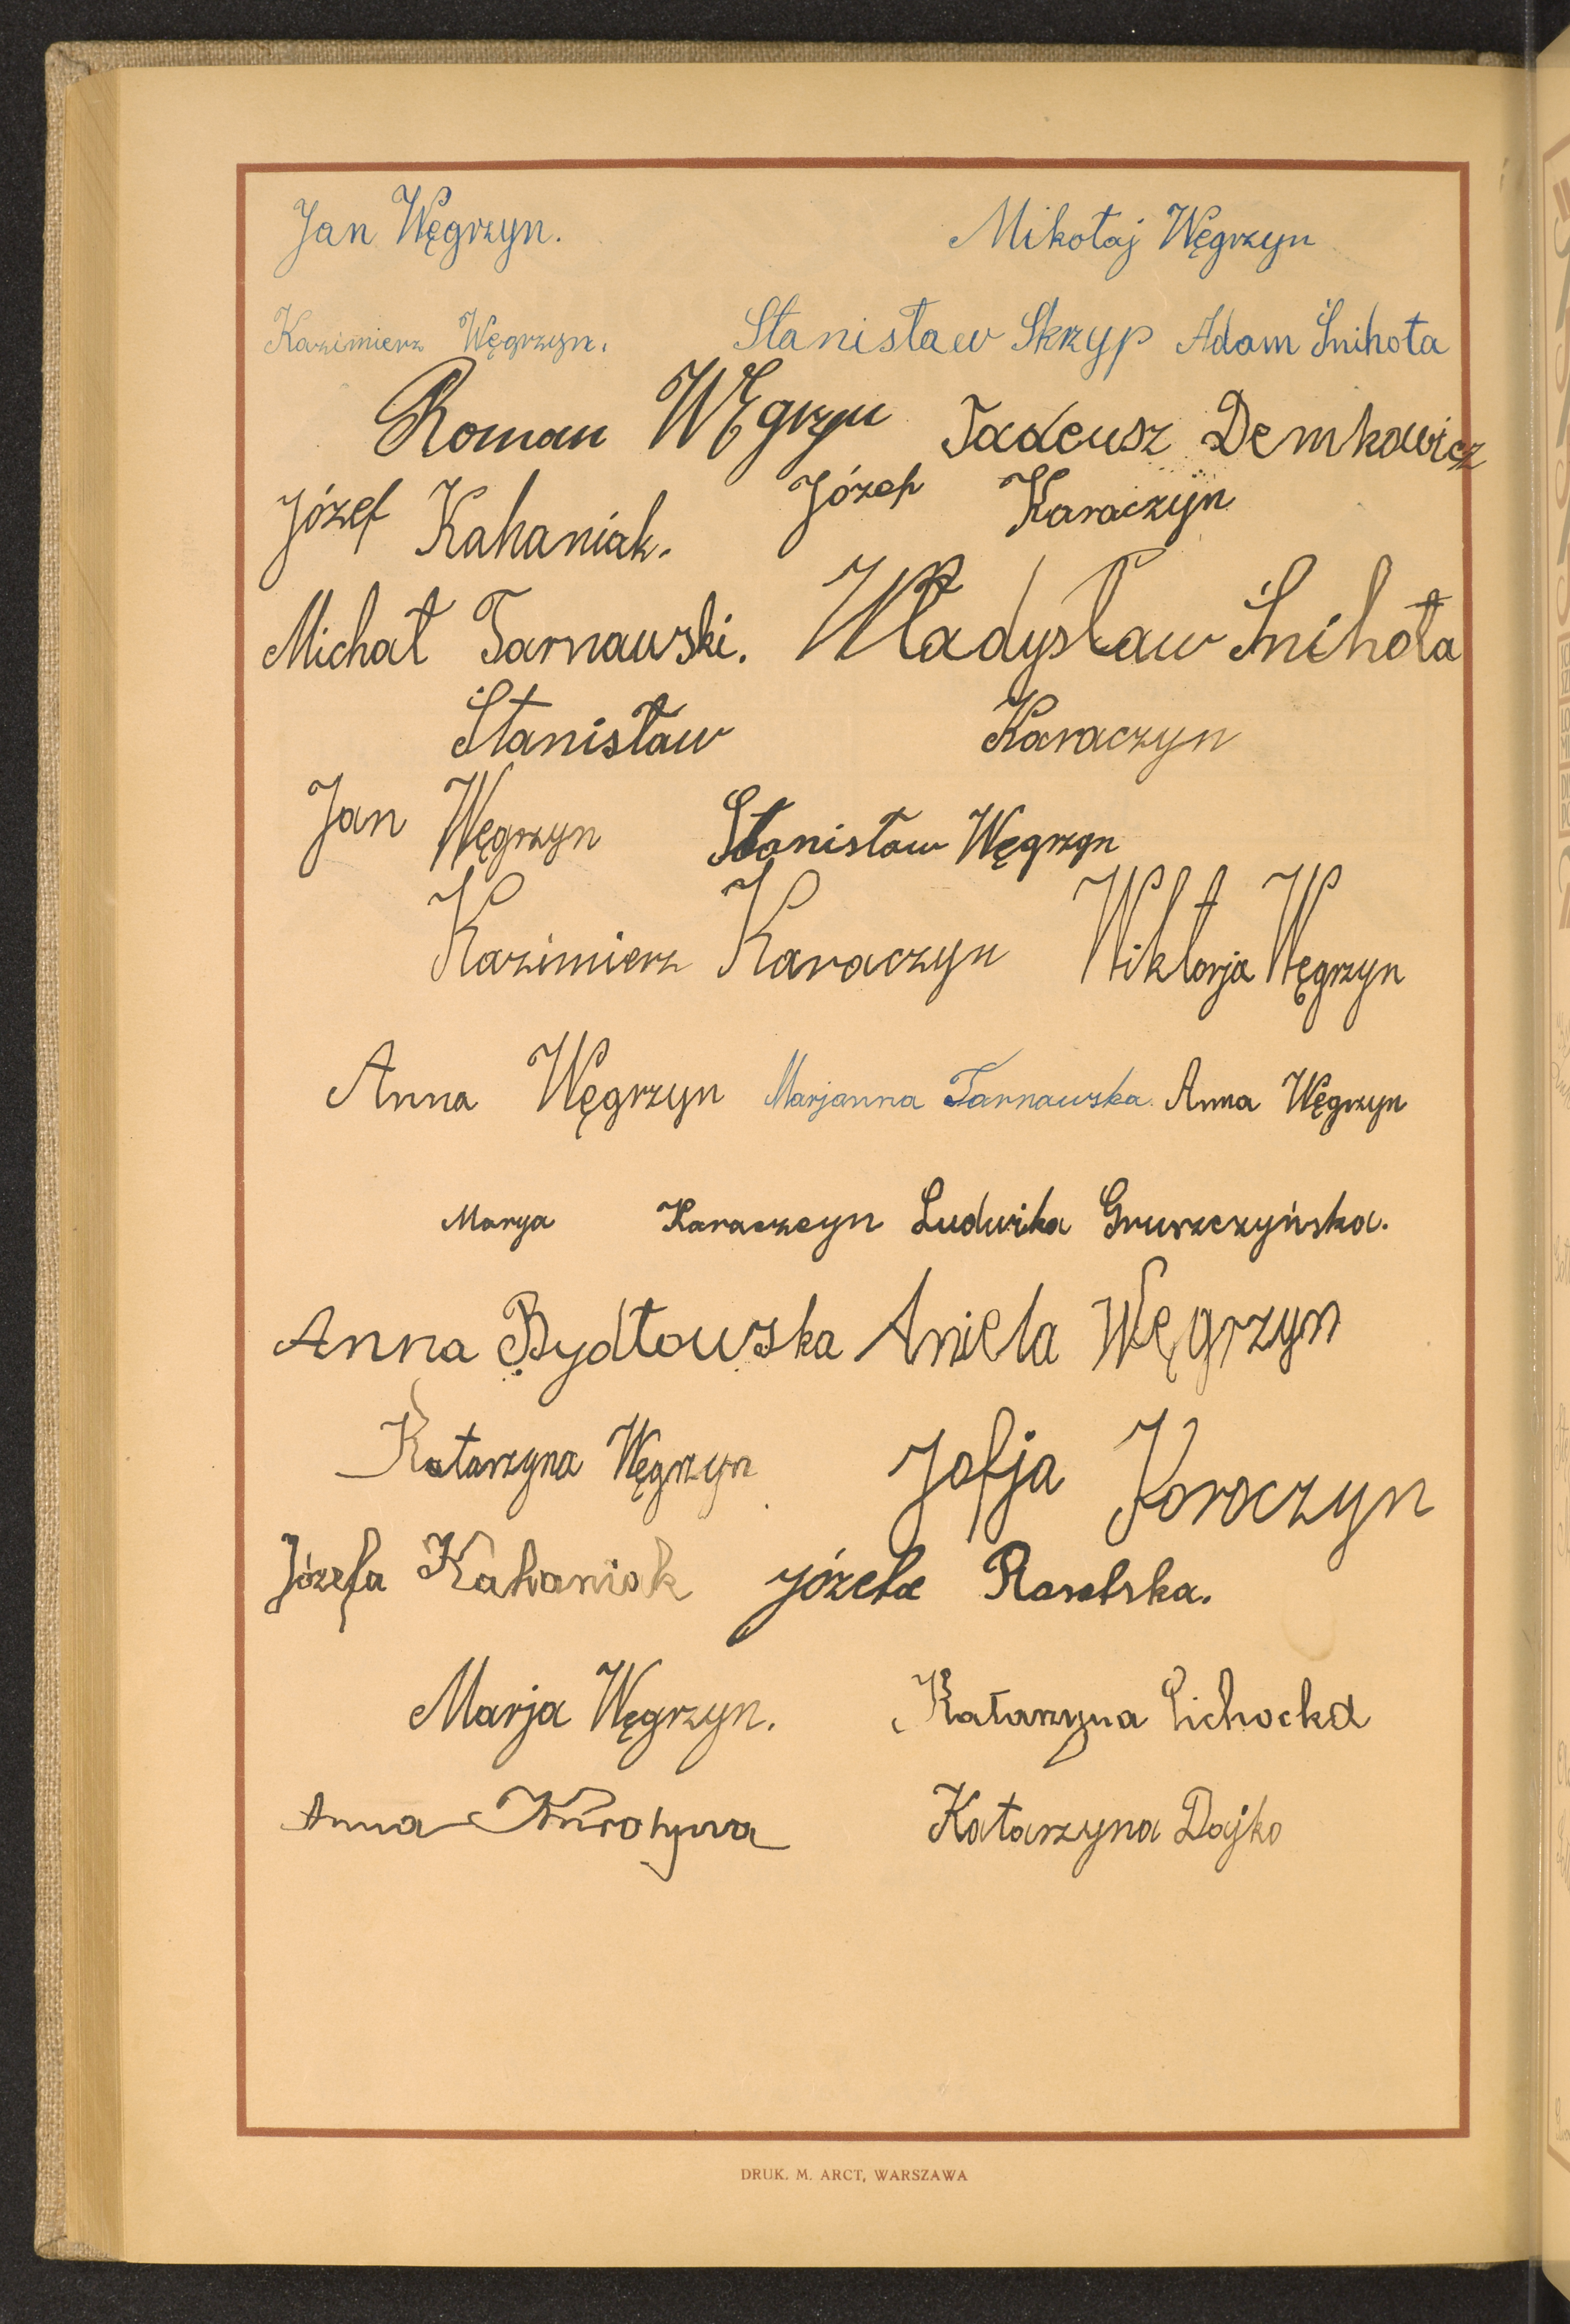 Jan Węgrzyn. Mikołaj Węgrzyn
Kazimierz Węgrzyn. Stanisław Skrzyp Adam Śnihota
Roman Węgrzyn Tadeusz Demkowicz
Józef Kahaniak. Józef Karaczyn
Michał Tarnawski. Władysław Śnihota
Stanisław Karaczyn
Jan Węgrzyn Stanisław Węgrzyn
Kazimierz Karaczyn Wiktorja Węgrzyn
Anna Węgrzyn Marjanna Tarnawska. Anna Węgrzyn
Marya Karaczeyn Ludwika Gruszczyńska.
Anna Bydłowska Aniela Węgrzyn
Katarzyna Węgrzyn Zofja Koroczyn
Józefa Kahaniak Józefa
Marja Węgrzyn. Katarzyna Cichocka
Anna Katarzyna Dajko
DRUK. M. ARCT, WARSZAWA